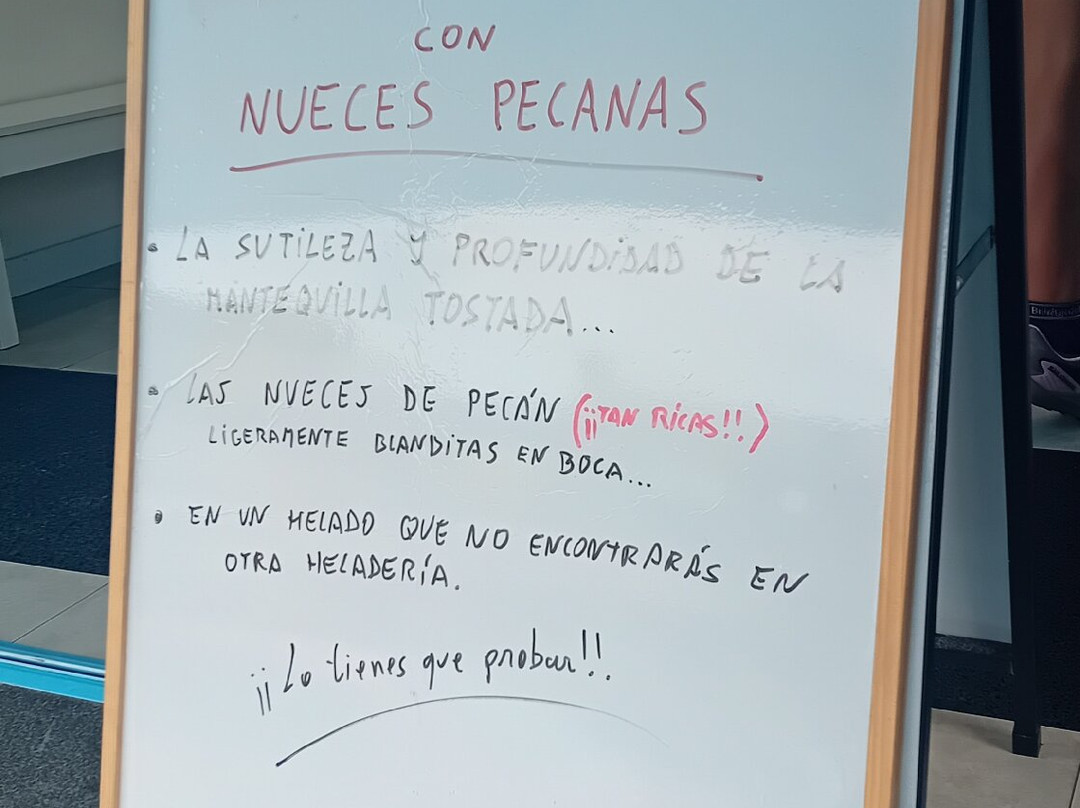 CON
NUECES PECANAS
• LA SUTILEZA Y PROFUNDIDAD DE LA
MANTEQUILLA TOSTADA...
• LAS NUECES DE PECÁN (¡¡TAN RICAS!!)
LIGERAMENTE BLANDITAS EN BOCA...
• EN UN HELADO QUE NO ENCONTRARÁS EN
OTRA HELADERÍA.
¡¡Lo tienes que probar!!